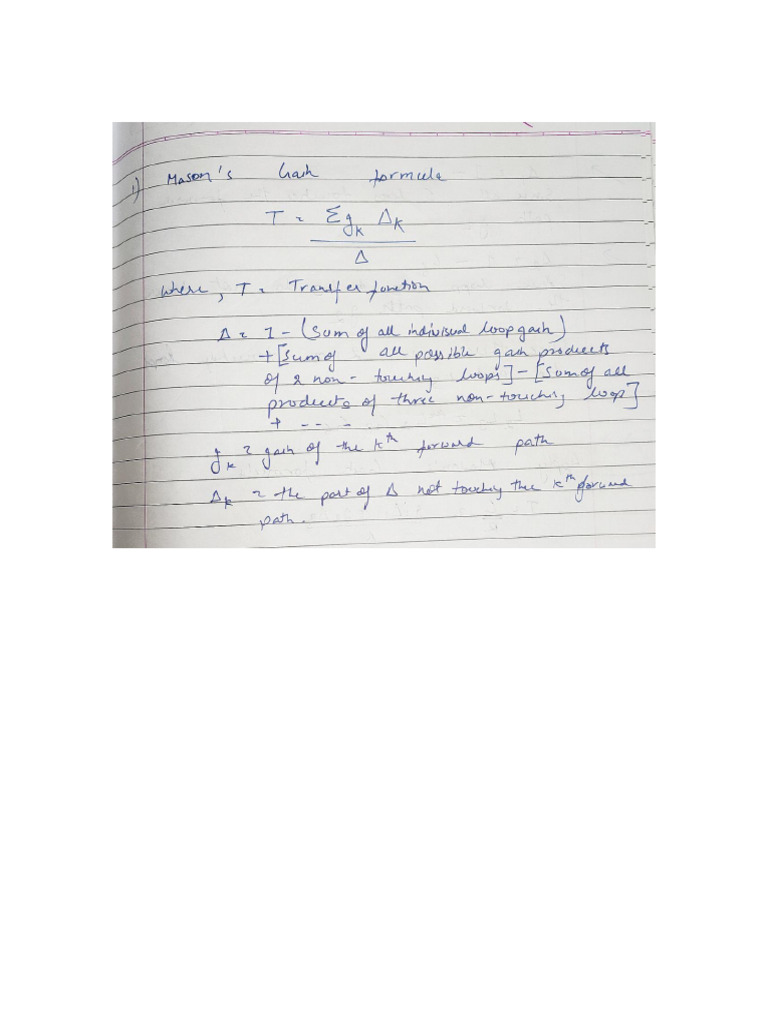 1) Mason's Gain formula
T = Σ g_k Δ_k
Δ
Where, T = Transfer function
Δ = 1 - (Sum of all individual loop gain)
+ [Sum of all possible gain products
of 2 non-touching loops] - [Sum of all
products of three non-touching loop]
+ -- - .
g_k = gain of the k^th forward path
Δ_k = the part of Δ not touching the k^th forward
path.